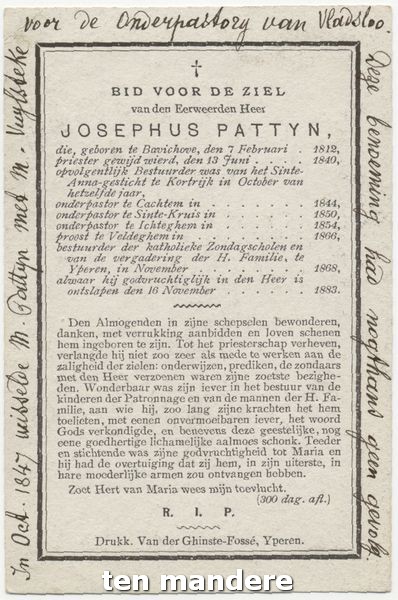 voor de Onderpastorij van Vladsloo.
In Oct. 1847 wisselde M. Pattyn met M. Vuylsteke
Deze benoeming had nogthans geen gevolg.
†
BID VOOR DE ZIEL
van den Eerweerden Heer
JOSEPHUS PATTYN,
die, geboren te Bavichove, den 7 Februari . 1812,
priester gewijd wierd, den 13 Juni . . . . 1840,
opvolgentlijk Bestuurder was van het Sinte-
Anna-gesticht te Kortrijk in October van
hetzelfde jaar,
onderpastor te Cachtem in . . . . . . . 1844,
onderpastor te Sinte-Kruis in . . . . . . 1850,
onderpastor te Ichteghem in . . . . . . 1854,
proost te Veldeghem in . . . . . . . . 1866,
bestuurder der katholieke Zondagscholen en
van de vergadering der H. Familie, te
Yperen, in November . . . . . . . . 1868,
alwaar hij godvruchtiglijk in den Heer is
ontslapen den 16 November . . . . . . 1883.
Den Almogenden in zijne schepselen bewonderen,
danken, met verrukking aanbidden en loven schenen
hem ingeboren te zijn. Tot het priesterschap verheven,
verlangde hij niet zoo zeer als mede te werken aan de
zaligheid der zielen: onderwijzen, prediken, de zondaars
met den Heer verzoenen waren zijne zoetste bezighe-
den. Wonderbaar was zijn iever in het bestuur van de
kinderen der Patronnage en van de mannen der H. Fa-
milie, aan wie hij, zoo lang zijne krachten het hem
toelieten, met eenen onvermoeibaren iever, het woord
Gods verkondigde, en benevens deze geestelijke, nog
eene goedhertige lichamelijke aalmoes schonk. Teeder
en stichtende was zijne godvruchtigheid tot Maria en
hij had de overtuiging dat zij hem, in zijn uiterste, in
hare moederlijke armen zou ontvangen hebben.
Zoet Hert van Maria wees mijn toevlucht.
(300 dag. afl.)
R. I. P.
Drukk. Van der Ghinste-Fossé, Yperen.
ten mandere